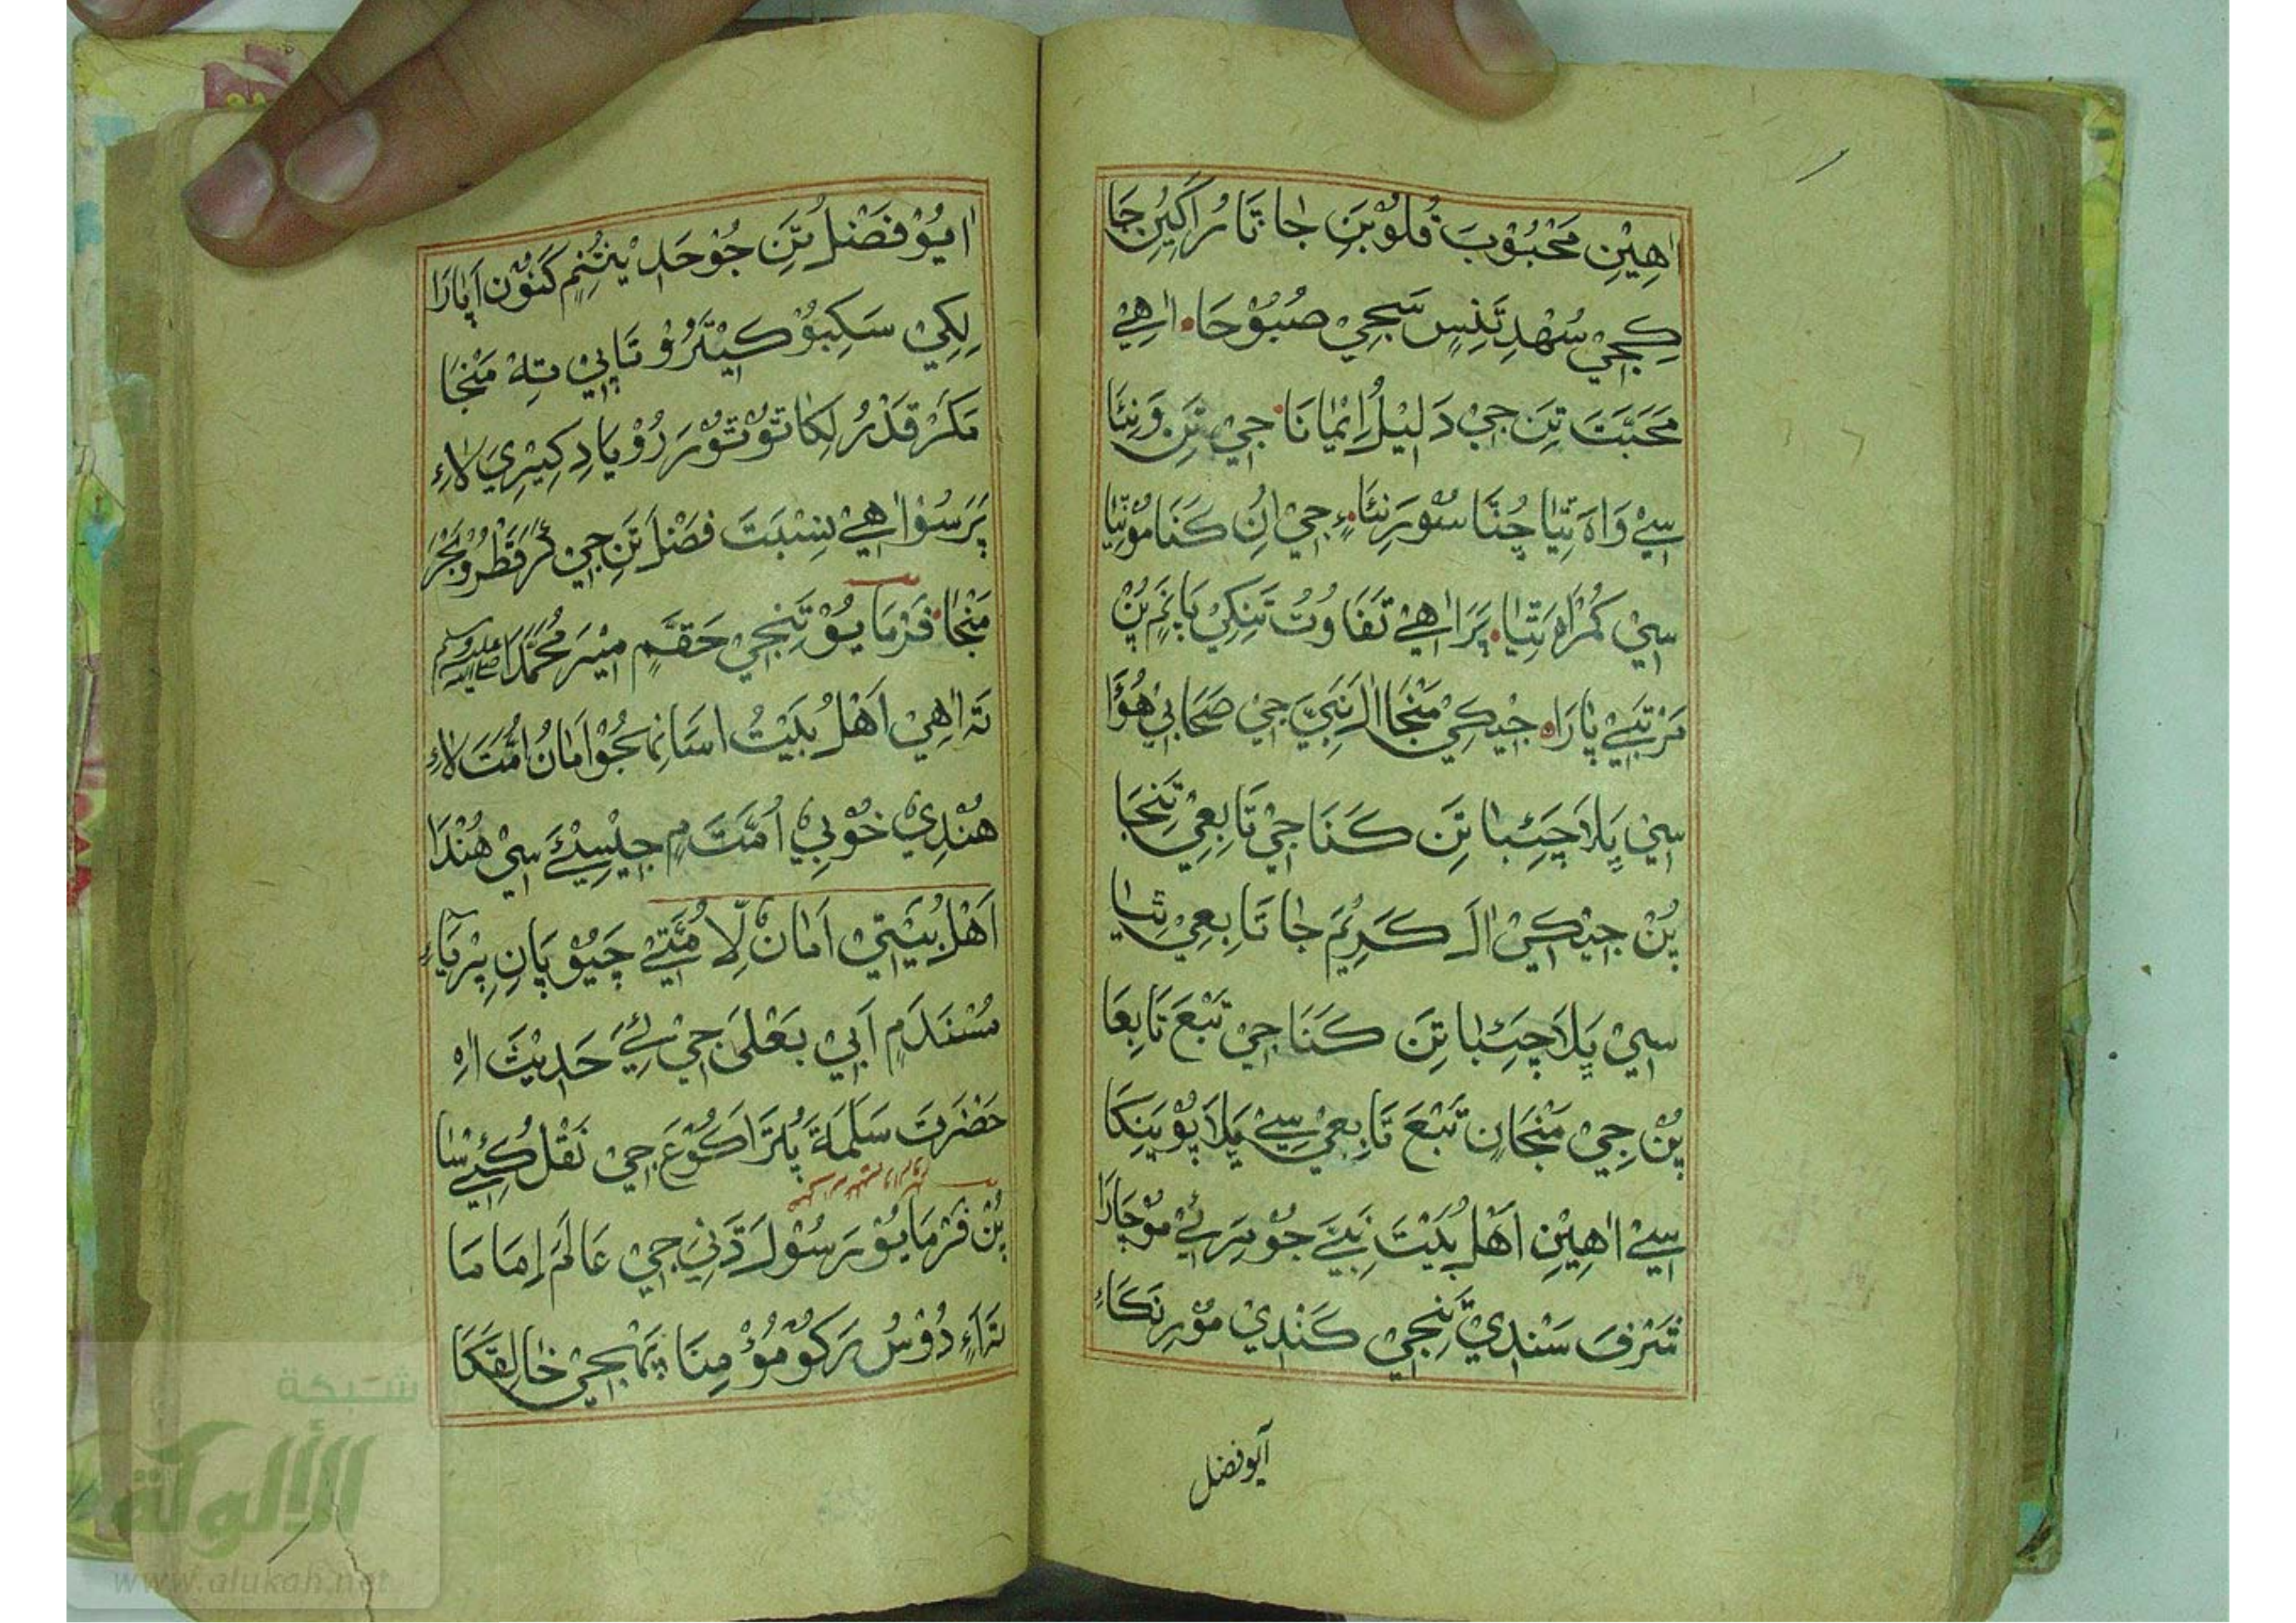 اٰهِيْنِ مَحْبُوْبَ قُلُوْبَنِ جَا تَا رُ اَکِيُنِ جَا
کِجِيْ سُهْدِ تَنِسٍ سَجِيْ صُبُوْحَا اٰهِيْ
مَحَبَّتَ تِنِ جِيْ دَلِيْلُ اِيْمَانَا جِيْ تِنِ وَنِئَا
سِيْ وَاهَ تِئَا چُنَّا سُوْرَنِئَا جِيْ اُنِ کَنَا مُوْنِئَا
سِيْ گُمْرَاهَ تِئَا پَرَ اٰهِيْ تَفَاوُتُ تَنِکِيْ پَانَمِ پُنْ
مَرْتَبِيْ پَارَاہ جِيْکِيْ مَنْجَا اٰلَ نَبِيَّ جِيْ صَحَابِيْ هُؤَا
سِيْ ڀَلَا چَئِبَا تِنِ کَنَا جِيْ تَابِعِيْ تَنِجَا
پُنْ جِيْکِيْ اٰلَ کَرِيْمَ جَا تَابِعِيْ تِئَا
سِيْ ڀَلَا چَئِبَا تِنِ کَنَا جِيْ تَبْعَ تَابِعَا
پُنْ جِيْ مَنْجَانِ تَبْعَ تَابِعِيْ سِيْ ڀَلَا پُوْيَنِکَا
سِيْ اٰهِيْنِ اَهْلُ بَيْتَ نَبِيَّ جُوْ سَرِئِيْ مُوْچَارَا
شَرْفَ سَنْدِيْ تَنِجِيْ کَنْدِيْ مُوْرِ نَکَاءِ
اَيو فضل
اٰيُوْ فَضْلُ تَنِ جُوْ حَدِيْثُنِمِ کَنُوْن اَپَارَا
لِکِيْ سَکِبُوْ کِيْتَرُوْ تَاپِيْ تِهْ مَنْجَا
مَکَرْ قَدْرُ لِکَا تُوْ تُوْرَرُوْ يَادِ کِيْرِيَ لَاءِ
پَرَسُوْ اٰهِيْ نِسْبَتَ فَضْلَ تَنِ جِيْ کَرْ قَطْرُوْ بَحْرَ
مَنْجَا فَرْمَايُوْ تَنِجِيْ حَقَّمِ مِيْرَ مُحَمَّدَا صلى الله عليه وسلم
تَہ اٰهِيْ اَهْلُ بَيْتُ اسَانِهِجُوْ اَمَانُ اُمَّتَ لَاءِ
هُنْدِيْ خُوْبِيْ اُمَّتَ مِ جِيْسِيْئَ سِيْ هُنْدَا
اَهْلُ بَيْتِيْ اَمَانٌ لِّاُمَّتِيْ چَيُوْ پَانِ پِرْيَاءِ
مُسْنَدَمِ اَبِيْ يَعْلَىٰ جِيْ ئِيَ حَدِيْثَ اٰهِ
حَضْرَتَ سَلَمَةَ پُٽَرَ اَکْوَعَ جِيْ نَقْلُ کُئِيْ سَا
پُنْ فَرْمَايُوْ رَسُوْلَ دَنِيْ جِيْ عَالَمَ اِمَامَا
تَہ اَءِ دُوْسُ رَکُوْ مُؤْمِنَا پَهْجِيْ خَالِقَکَا
شبكة
الألوكة
www.alukah.net